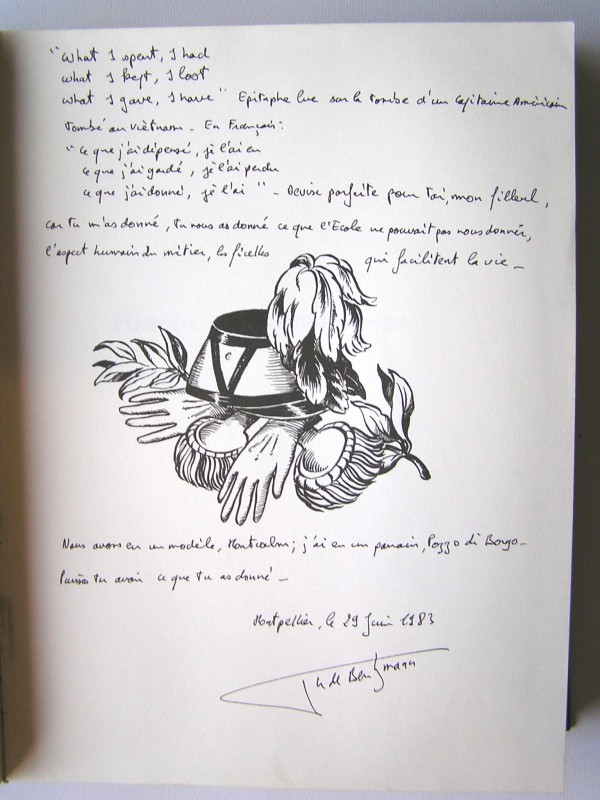 "What I spent, I had
what I kept, I lost
what I gave, I have" Epitaphe lue sur la tombe d'un Capitaine Américain
tombé au Viêtnam - En Français:
"ce que j'ai dépensé, je l'ai eu
ce que j'ai gardé, je l'ai perdu
ce que j'ai donné, je l'ai" - Devise parfaite pour toi, mon filleul,
car tu m'as donné, tu nous as donné ce que l'Ecole ne pouvait pas nous donner,
l'aspect humain du métier, les ficelles qui facilitent la vie -
Nous avons eu un modèle, Montcalm; j'ai eu un parrain, Pozzo di Borgo -
Puisses tu avoir ce que tu as donné -
Montpellier, le 29 Juin 1983
de Bentzmann